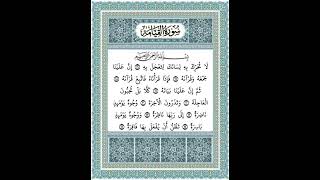 سورة القيامة
بسم الله الرحمن الرحيم
لَا تُحَرِّكْ بِهِ لِسَانَكَ لِتَعْجَلَ بِهِ ۝ إِنَّ عَلَيْنَا
جَمْعَهُ وَقُرْآنَهُ ۝ فَإِذَا قَرَأْنَاهُ فَاتَّبِعْ قُرْآنَهُ ۝
ثُمَّ إِنَّ عَلَيْنَا بَيَانَهُ ۝ كَلَّا بَلْ تُحِبُّونَ
الْعَاجِلَةَ ۝ وَتَذَرُونَ الْآخِرَةَ ۝ وُجُوهٌ يَوْمَئِذٍ
نَاضِرَةٌ ۝ إِلَى رَبِّهَا نَاظِرَةٌ ۝ وَوُجُوهٌ يَوْمَئِذٍ
بَاسِرَةٌ ۝ تَظُنُّ أَنْ يُفْعَلَ بِهَا فَاقِرَةٌ ۝